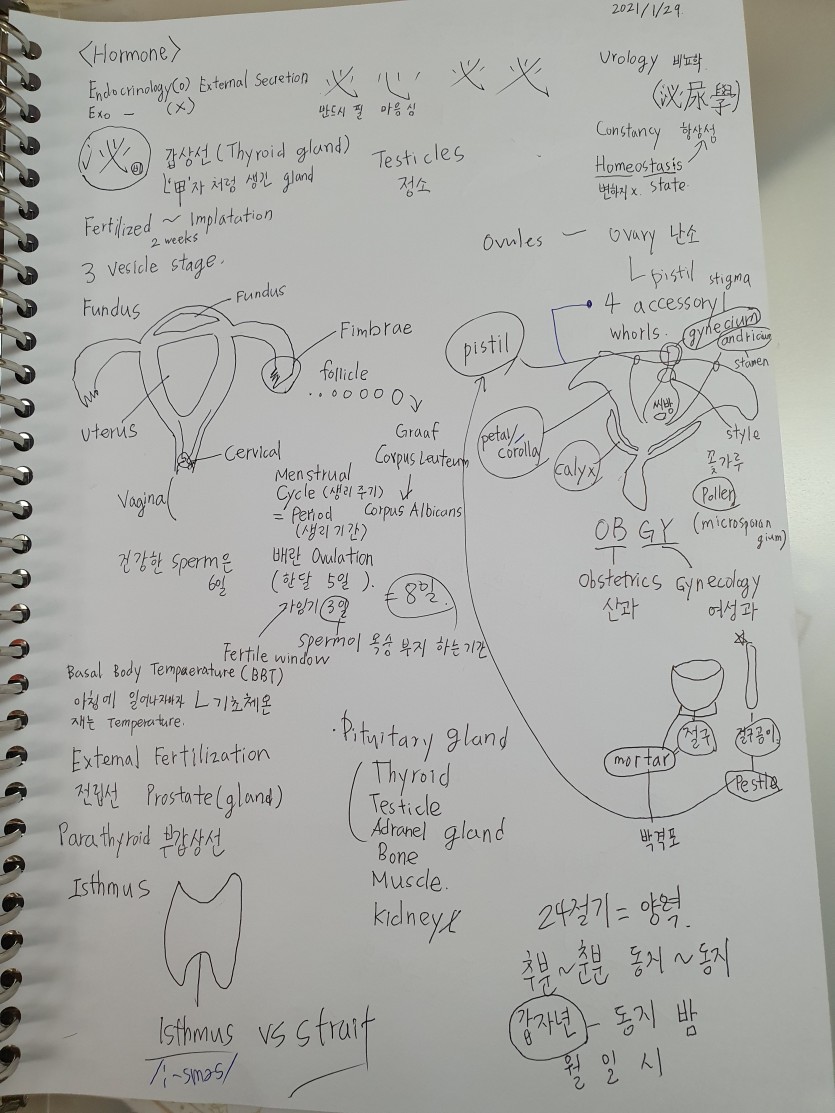 2021/1/29.
<Hormone>
Endocrinology(o) External Secretion
Exo - (x)
必 心 必 必
반드시 필 마음 심
Urology 비뇨학
(泌尿學)
Constancy 항상성
Homeostasis
변하지x. state.
泌 비
갑상선 (Thyroid gland)
L'甲'자 처럼 생긴 gland
Testicles
정소
Fertilized ~ Implatation
2 weeks
3 vesicle stage.
Ovules - Ovary 난소
L pistil
stigma
4 accessory
whorls.
gynecium
andricium
stamen
pistil
petal/
corolla
calyx
씨방
style
꽃가루
Pollen
(microsporan
gium)
Fundus
Fundus
Fimbrae
follicle
Graaf
Corpus Leuteum
Corpus Albicans
Uterus
Cervical
Vagina
Menstrual
Cycle (생리 주기)
= Period
(생리 기간)
건강한 sperm은
6일
배란 Ovulation
(한달 5일 ).
가임기 3일
= 8일.
Fertile window
sperm이 목숨 부지 하는기간
OB GY
Obstetrics Gynecology
산과 여성과
Basal Body Tempaerature (BBT)
아침에 일어나자마자 L 기초체온
재는 Temperature.
External Fertilization
전립선 Prostate(gland)
Parathyroid 부갑상선
Isthmus
·Pituitary gland
Thyroid
Testicle
Adranel gland
Bone
Muscle.
kidney
절구
절구공이
mortar
Pestle
박격포
24절기 = 양력.
추분~춘분 동지~동지
갑자년 - 동지 밤
월 일 시
Isthmus vs strait
/i-smes/